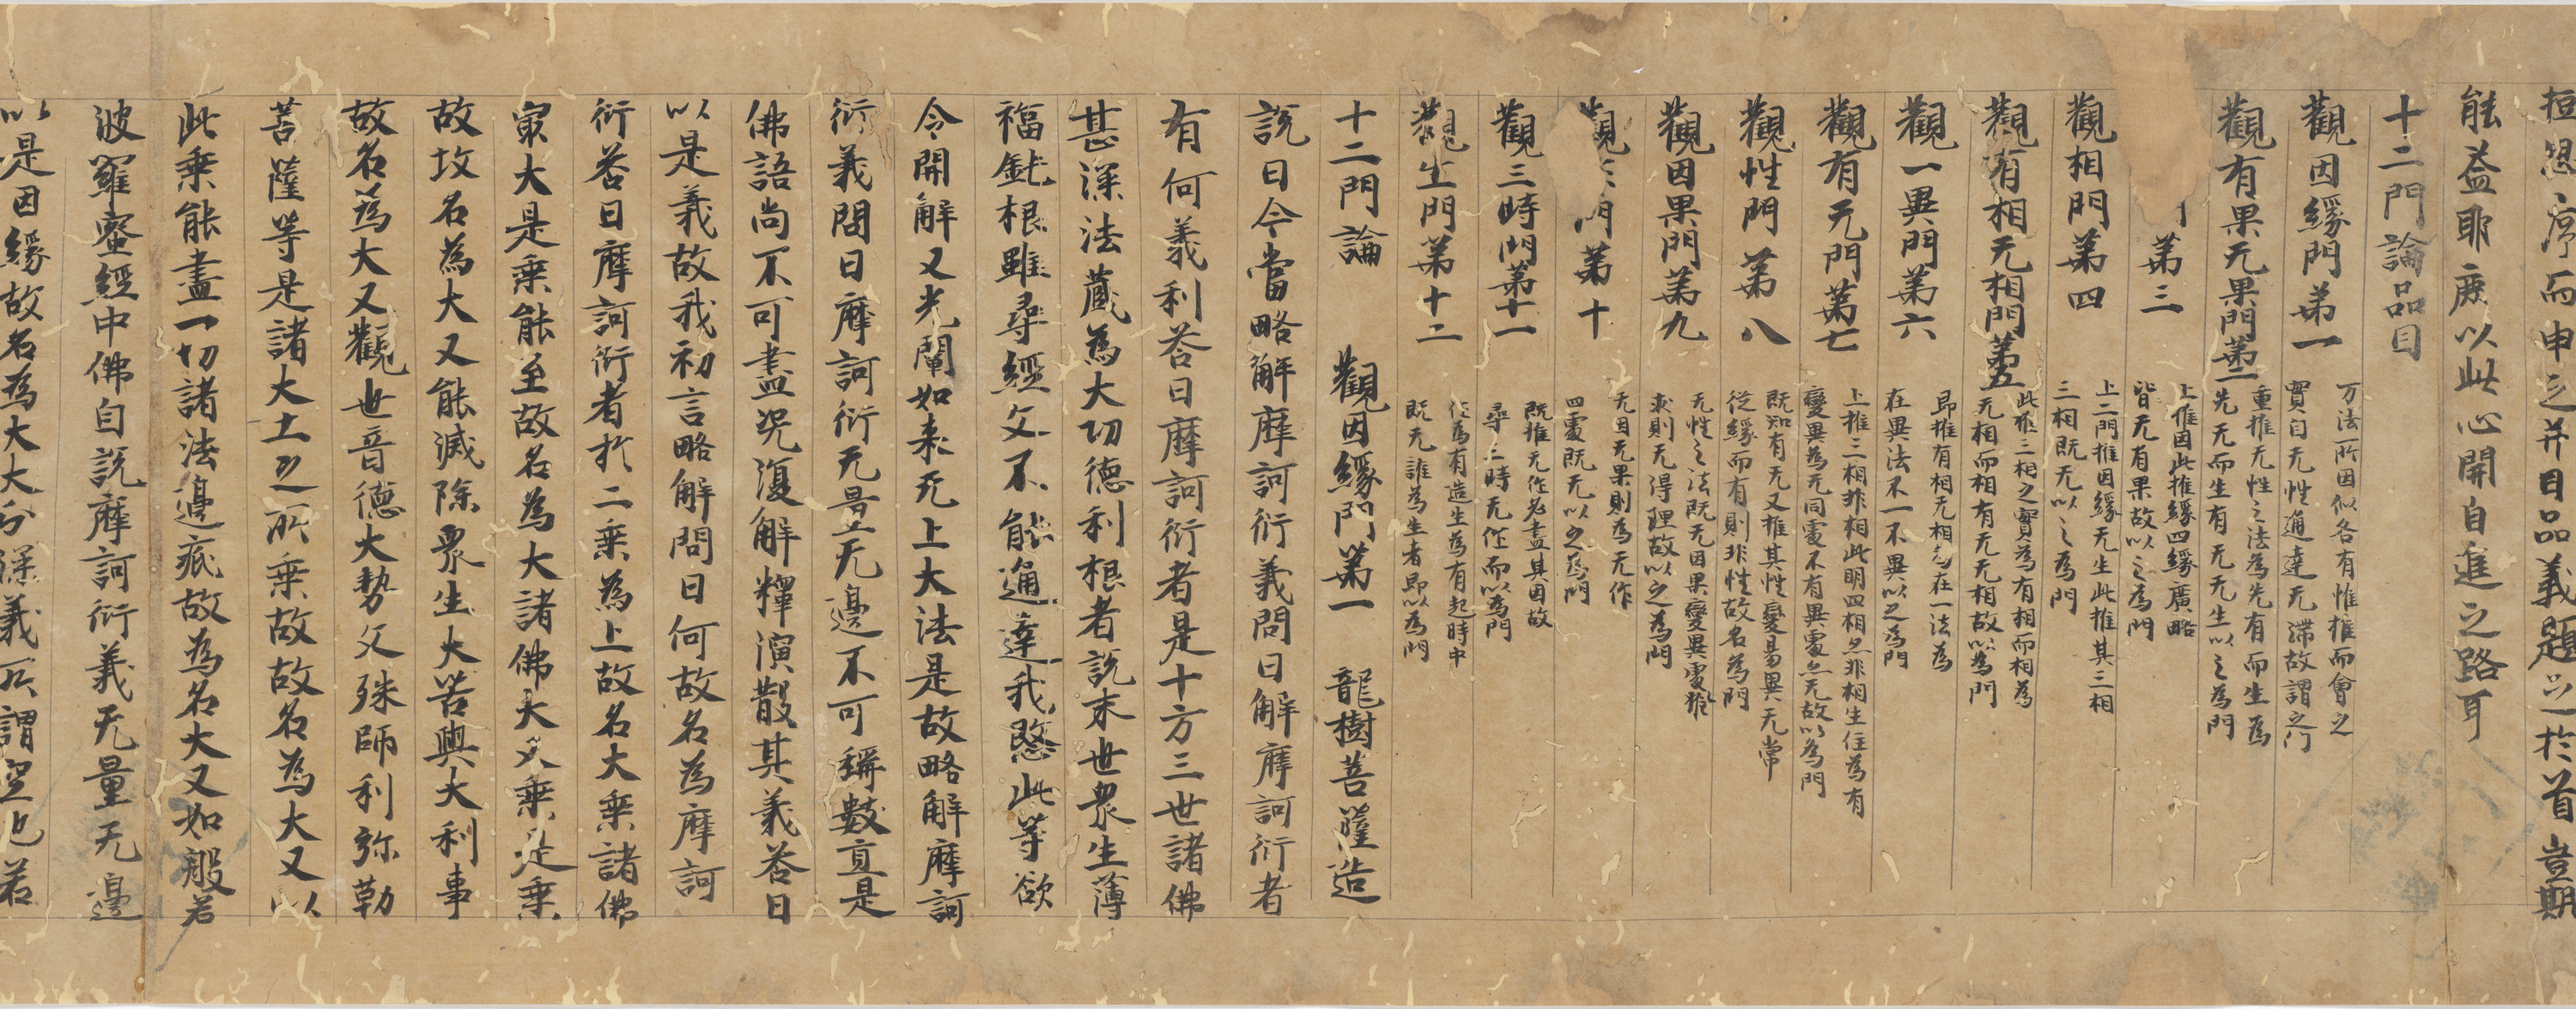 短思序而申之并目品義題之於首豈期
能益耶庶以此心開自進之路耳
十二門論品目
觀因緣門第一
万法所因似各有惟推而會之
實自无性通達无滞故謂之门
觀有果无果門第二
重推无性之法為先有而生為
先无而生有无无生以之為門
第三
上推因此推緣四緣廣略
皆无有果故以之為門
觀相門第四
上二門推因緣无生此推其三相
三相既无以之為門
觀有相无相門第五
此推三相之實為有相而相為
无相而相有无无相故以為門
觀一異門第六
即推有相无相為在一法為
在異法不一不異以之為門
觀有无門第七
上推三相非相此明四相亦非相生住為有
變異為无同處不有異處亦无故以為門
觀性門第八
既知有无又推其性變易異无常
從緣而有則非性故名為門
觀因果門第九
无性之法既无因果變異處推
求則无得理故以之為門
觀門第十
无因无果則為无作
四處既无以之為門
觀三時門第十一
既推无作必盡其因故
尋三時无作而以為門
觀生門第十二
作為有造生為有起時中
既无誰為生者即以為門
十二門論 觀因緣門第一 龍樹菩薩造
說曰今當略解摩訶衍義問曰解摩訶衍者
有何義利荅曰摩訶衍者是十方三世諸佛
甚深法藏為大功德利根者說末世衆生薄
福鈍根雖尋經文不能通達我愍此等欲
令開解又光闡如来无上大法是故略解摩訶
衍義問曰摩訶衍无量无邊不可稱數直是
佛語尚不可盡況復解釋演散其義荅曰
以是義故我初言略解問曰何故名為摩訶
衍荅曰摩訶衍者於二乘為上故名大乘諸佛
冣大是乘能至故名為大諸佛大人乘是乘
故故名為大又能滅除衆生大苦與大利事
故名為大又觀世音德大勢文殊師利弥勒
菩薩等是諸大士之所乘故故名為大又以
此乘能盡一切諸法邊底故為名大又如般若
波羅蜜經中佛自說摩訶衍義无量无邊
以是因緣故名為大大分深義所謂空也若